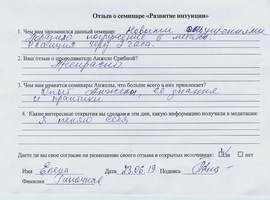 Отзыв о семинаре «Развитие интуиции»
1. Чем вам запомнился данный семинар: Новыми ощущениями
погружение в
через 2 часа.
2. Ваш отзыв о преподавателе Анжеле Срибной?
Прекрасно
3. Чем вам нравятся семинары Анжелы, что больше всего в них привлекает?
Анжелы её знание
и практики
4. Какие интересные открытия вы сделали в эти дни, какую информацию получили в медитации:
Я меняю себя
Даете ли вы свое согласие на размещение своего отзыва в открытых источниках: да нет
Имя Елена Дата 23.06.19 Подпись
Фамилия